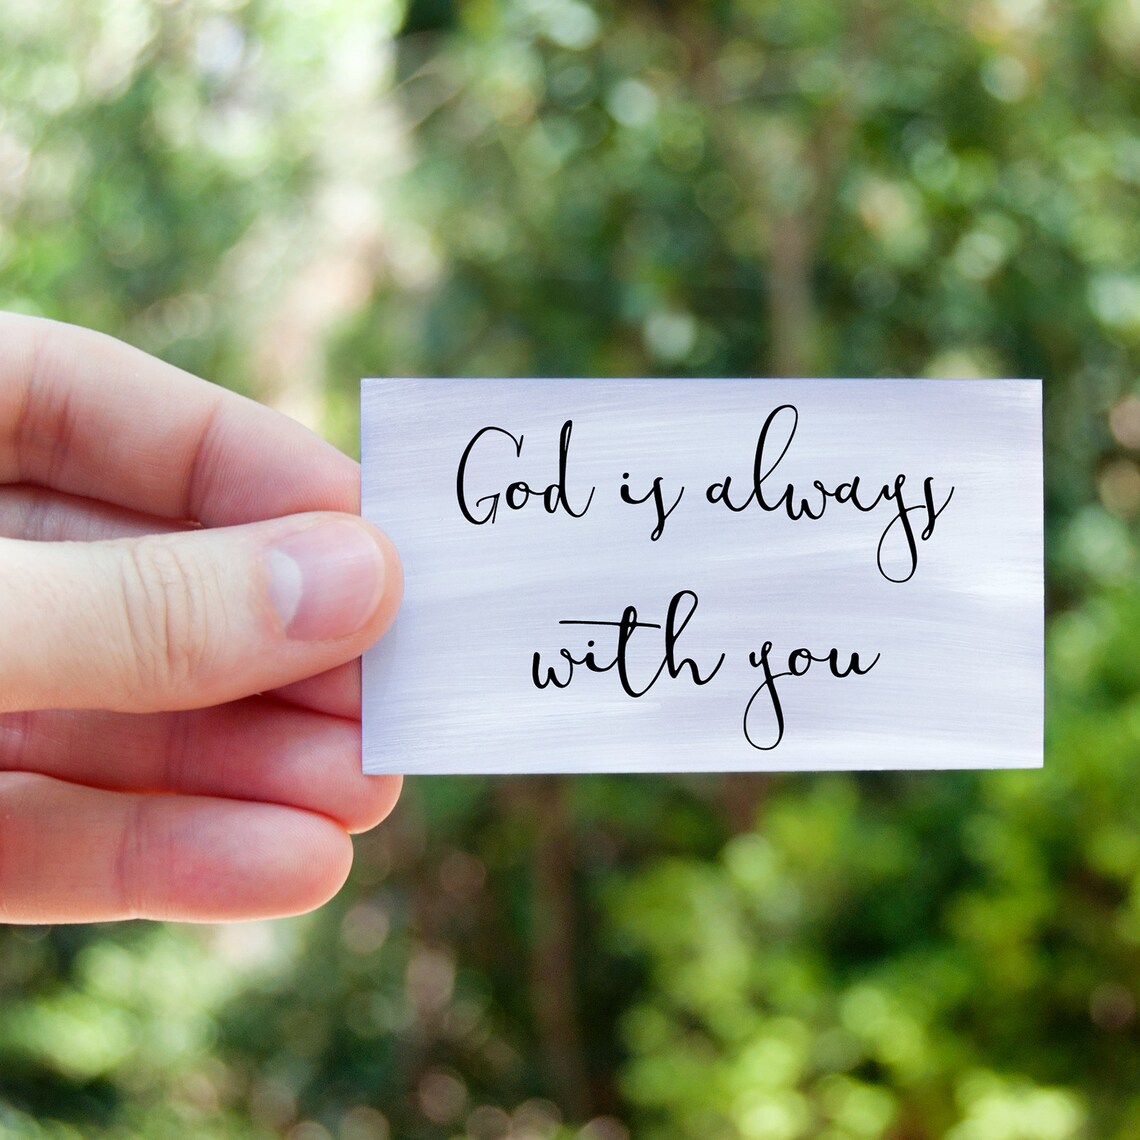 God is always
with you